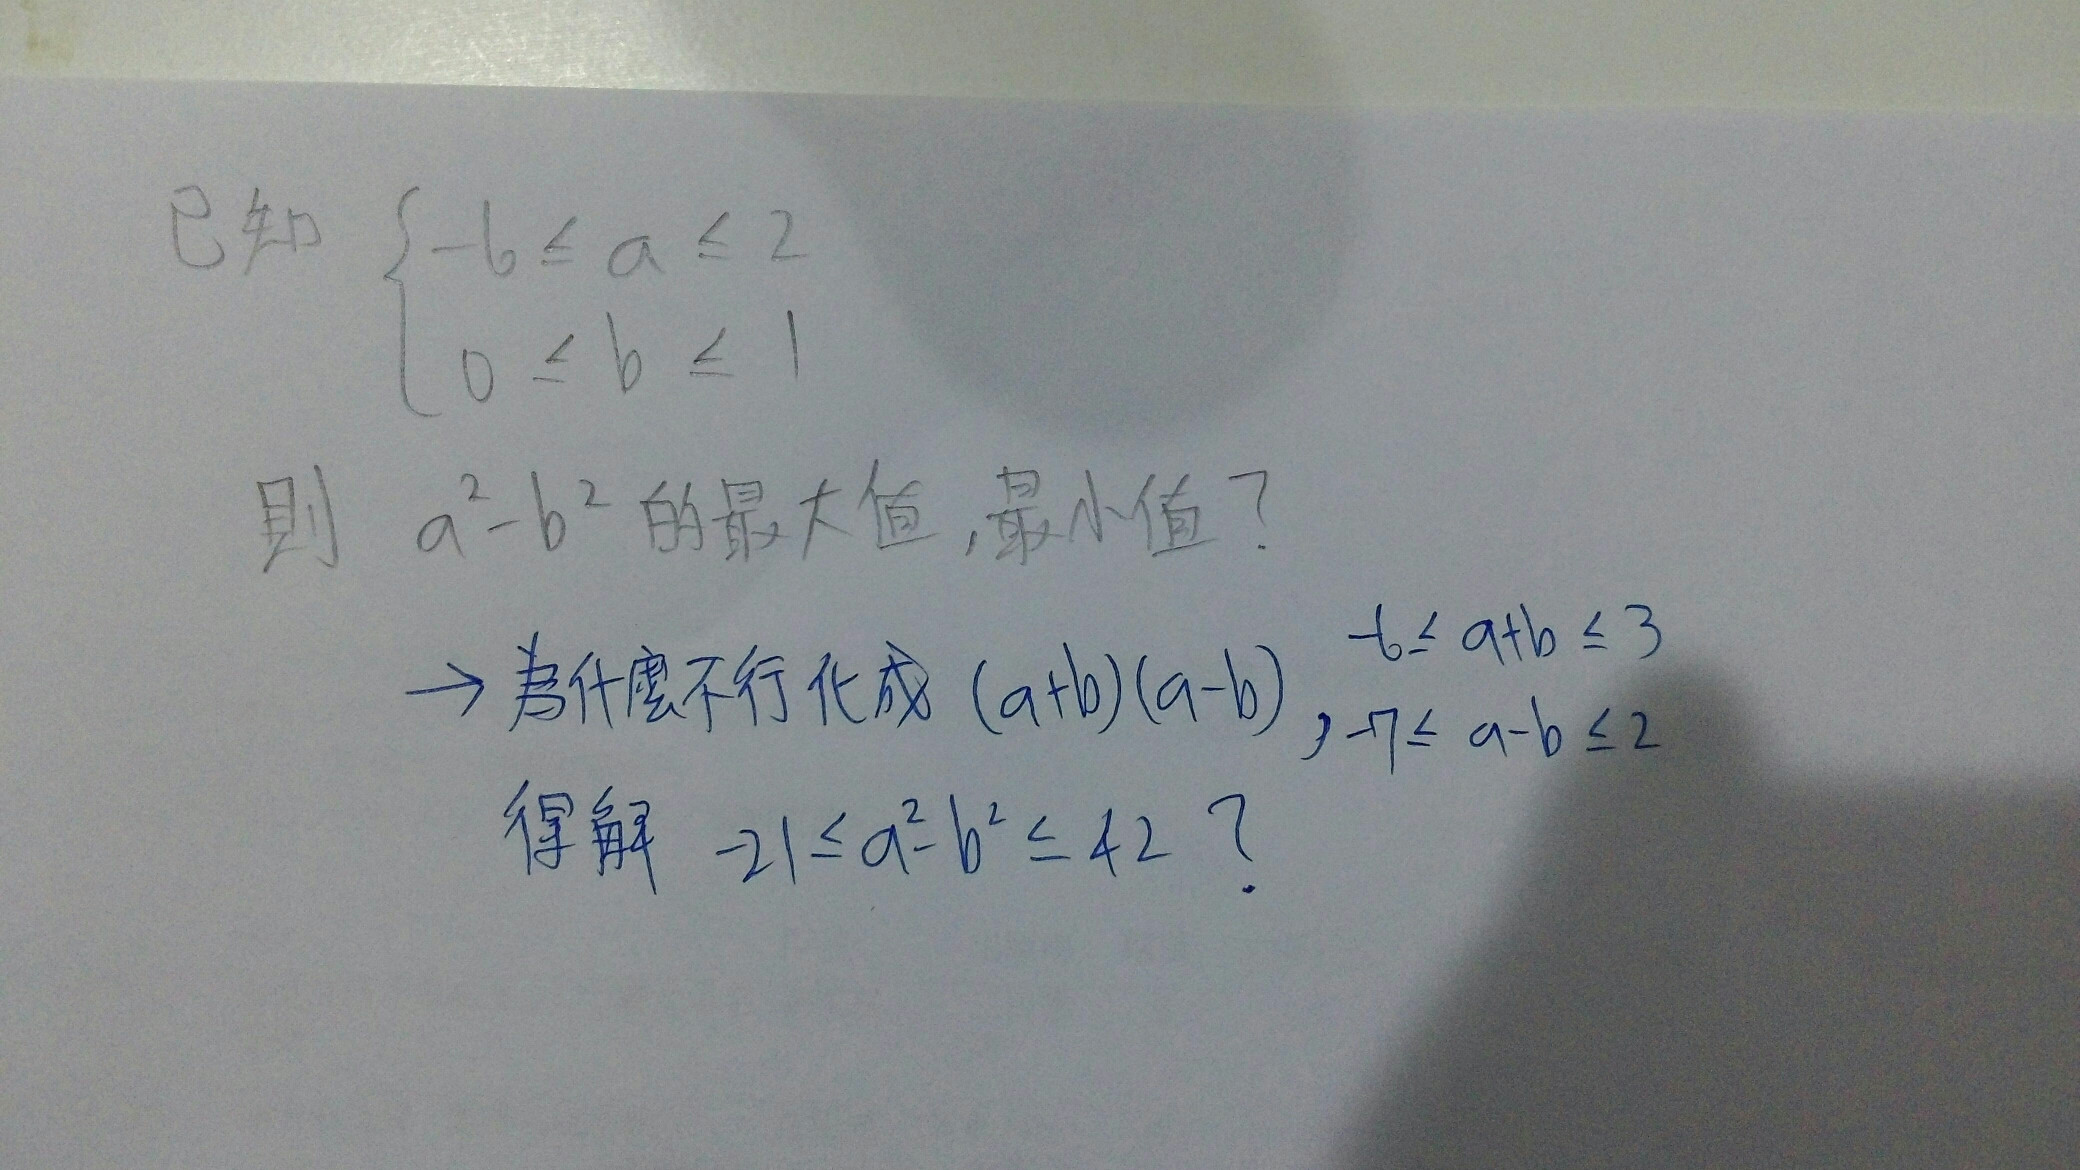 已知 { -6 ≤ a ≤ 2
0 ≤ b ≤ 1
則 a²-b² 的最大值,最小值?
→ 為什麼不行化成 (a+b)(a-b), -6 ≤ a+b ≤ 3
-7 ≤ a-b ≤ 2
得解 -21 ≤ a²-b² ≤ 42 ?